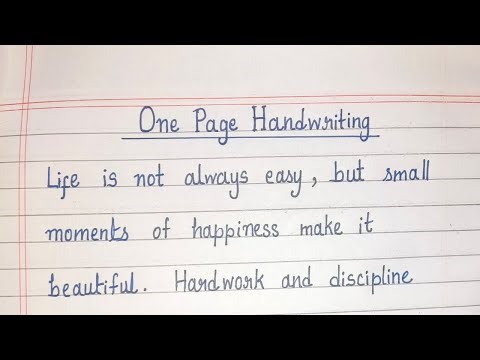 One Page Handwriting
Life is not always easy, but small
moments of happiness make it
beautiful. Hardwork and discipline